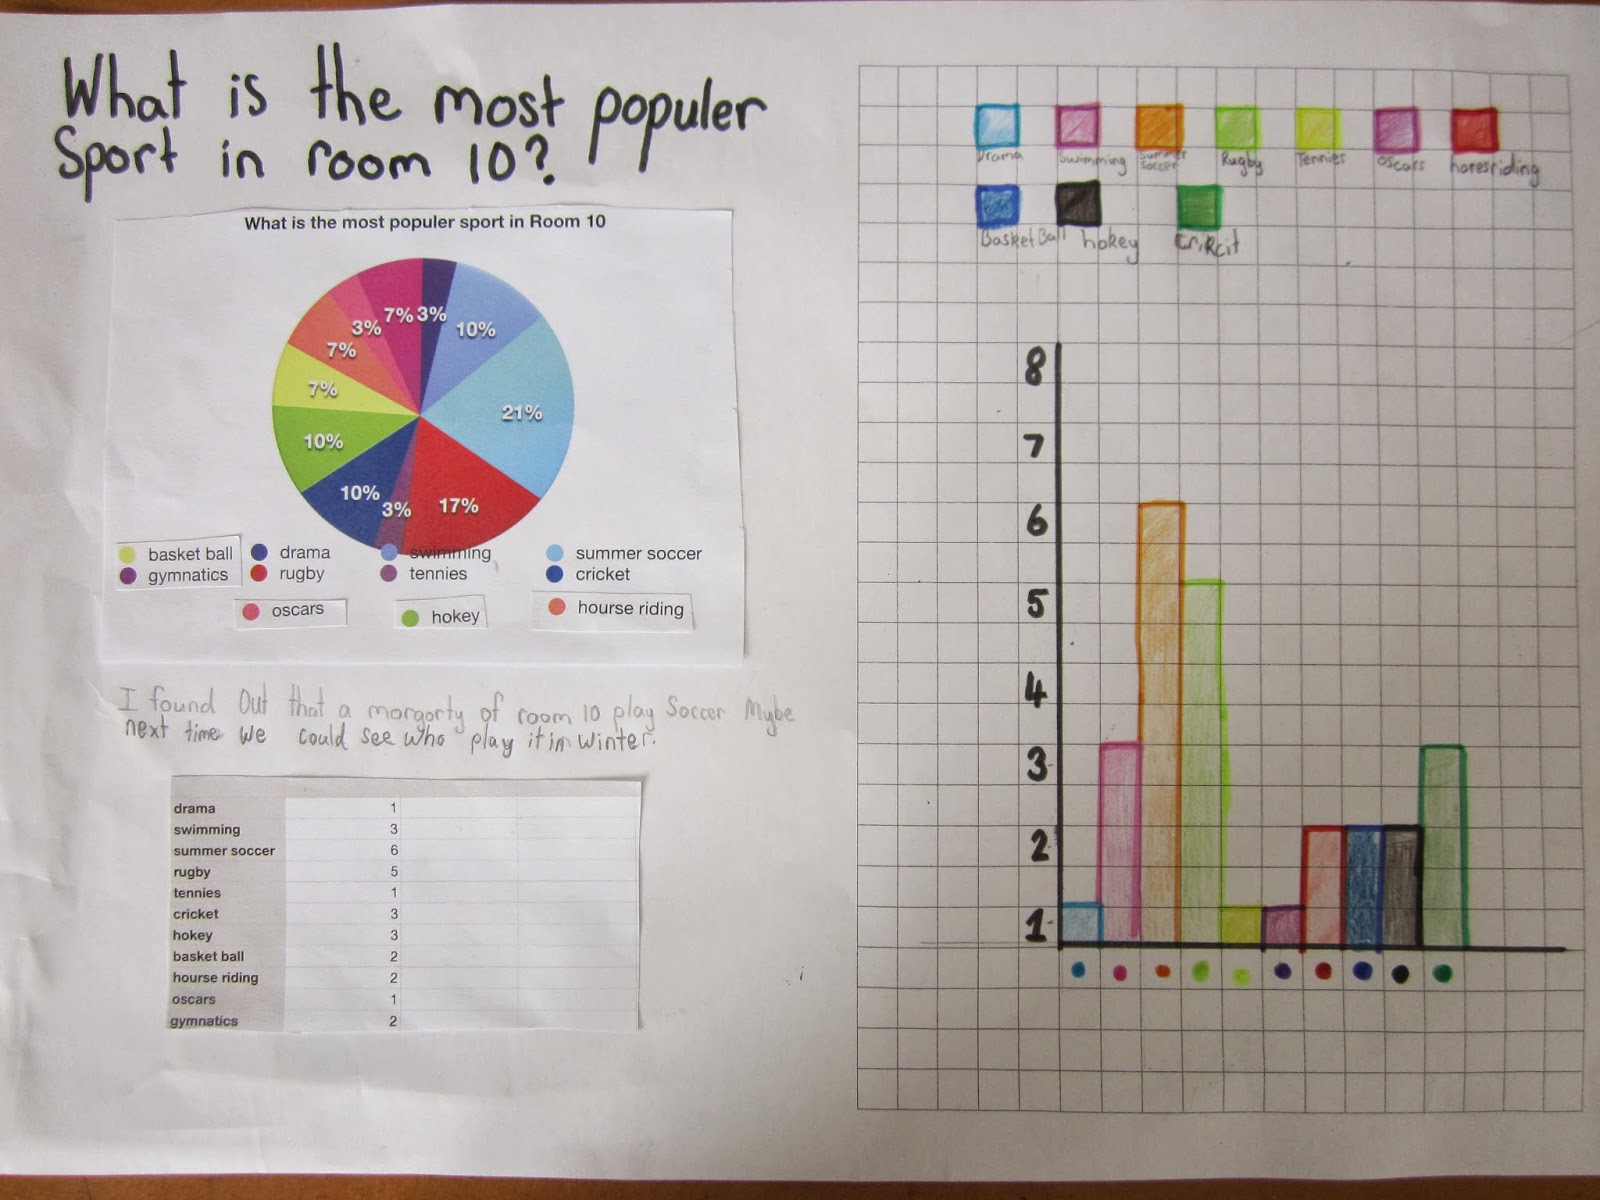 What is the most populer
Sport in room 10?
What is the most populer sport in Room 10
7% 3%
3% 10%
7%
7%
21%
10%
10%
3% 17%
basket ball drama swimming summer soccer
gymnatics rugby tennies cricket
oscars hokey hourse riding
I found Out that a morgorty of room 10 play Soccer Mybe
next time we could see who play it in winter.
drama 1
swimming 3
summer soccer 6
rugby 5
tennies 1
cricket 3
hokey 3
basket ball 2
hourse riding 2
oscars 1
gymnatics 2
Drama Swimming Summer Soccer Rugby Tennies Oscars horesriding
BasketBall hokey Crikcit
8
7
6
5
4
3
2
1